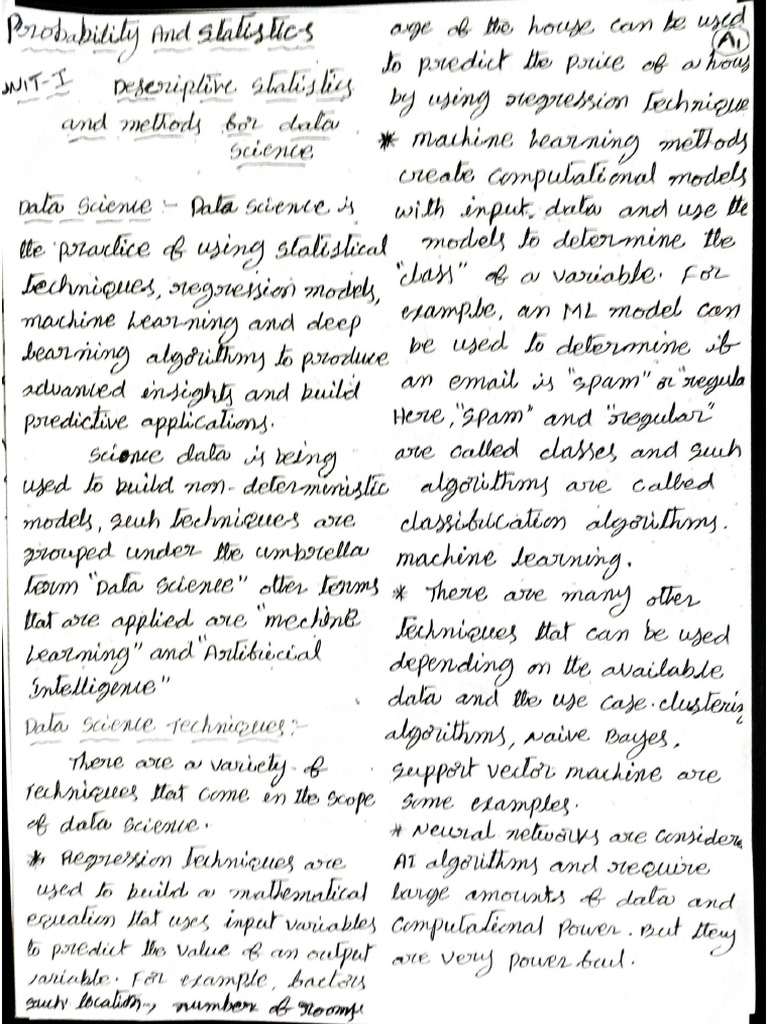 Probability And Statistics
UNIT-I Descriptive Statistics
and methods for data
science
Data Science :- Data science is
the practice of using statistical
techniques, regression models,
machine learning and deep
learning algorithms to produce
advanced insights and build
predictive applications.
Science data is being
used to build non-deterministic
models, such techniques are
grouped under the umbrella
term "Data Science" other terms
that are applied are "mechine
Learning" and "Artificial
Intelligence"
Data Science Techniques:-
There are a variety of
techniques that come in the scope
of data science.
* Regression techniques are
used to build a mathematical
equation that uses input variables
to predict the value of an output
variable. For example, factors
such location, number of rooms
A1
age of the house can be used
to predict the price of a hous
by using regression technique
* machine learning methods
create computational models
with input data and use the
models to determine the
"class" of a variable. For
example, an ML model can
be used to determine if
an email is "spam" or "regula
Here, "spam" and "regular"
are called classes, and such
algorithms are called
classification algorithms.
machine learning.
* There are many other
techniques that can be used
depending on the available
data and the use case. clusterin
algorithms, Naive Bayes,
support vector machine are
some examples.
* Neural networks are consider
AI algorithms and require
large amounts of data and
computational power. But they
are very powerful.